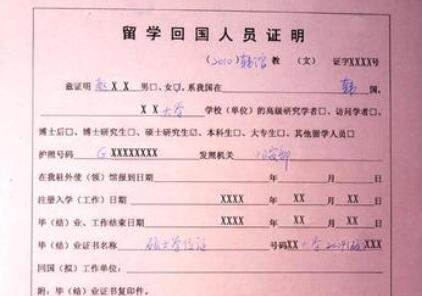 留学回国人员证明
(2010) 韩 教 (文) 证字XXXX号
兹证明 赵 X X 男□、女□,系我国在 韩 国,
X X 大学 学校(单位)的高级研究学者□、访问学者□、
博士后□、博士研究生□、硕士研究生☑、本科生□、大专生□、其他留学人员□
护照号码 G XXXXXXXX 发照机关 公安部
在我驻外使(领)馆报到日期 年 月 日
注册入学(工作)日期 XXXX 年 XX 月 XX 日
毕(结)业、工作结束日期 XXXX 年 XX 月 XX 日
毕(结)业证书名称 硕士学位证 号码XX 大学 2009
回国(拟)工作单位:
附:毕(结)业证书复印件。